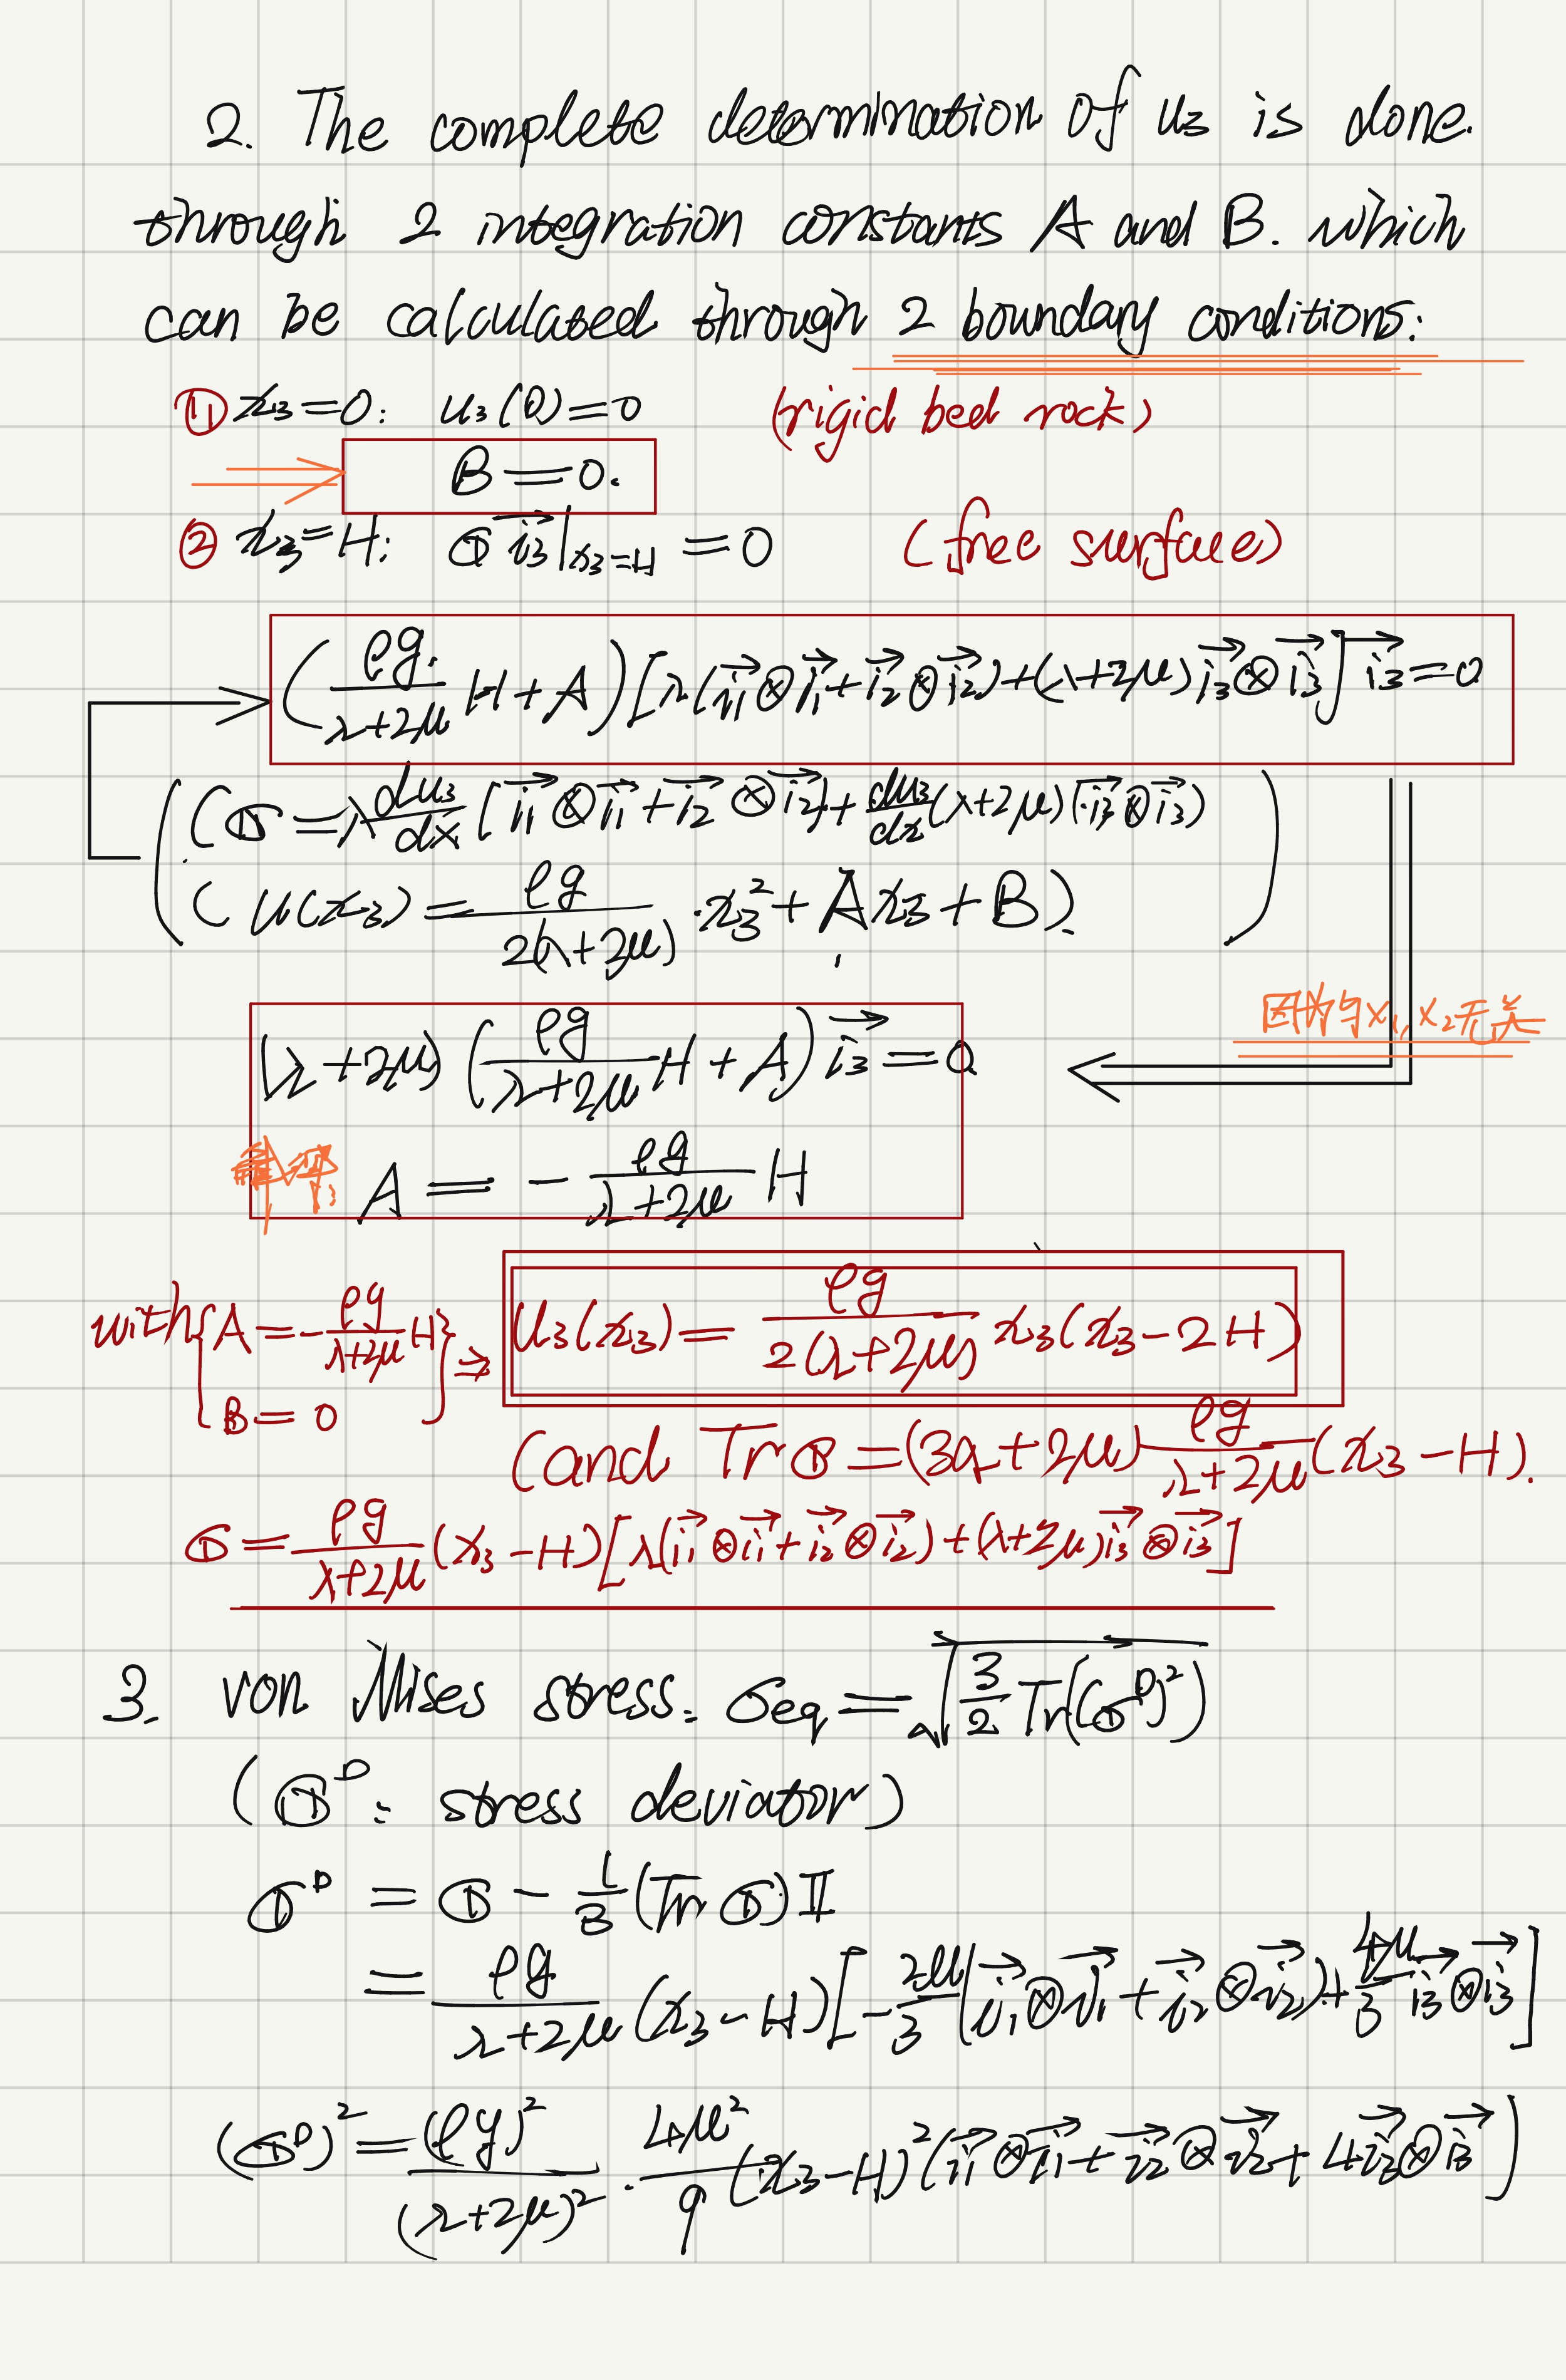 2. The complete determination of u₃ is done.
through 2 integration constants A and B. which
can be calculated through 2 boundary conditions:
① x₃=0: u₃(0)=0 (rigid bed rock)
B=0.
② x₃=H: σ i₃⃗|ₓ₃₌H = 0 (free surface)
(ρg/(λ+2μ) H+A)[λ(i₁⃗⊗i₁⃗+i₂⃗⊗i₂⃗)+(λ+2μ)i₃⃗⊗i₃⃗] i₃⃗=0
(σ=λ du₃/dx [i₁⃗⊗i₁⃗+i₂⃗⊗i₂⃗]+du₃/dx (λ+2μ)(i₃⃗⊗i₃⃗)
(u(x₃)=ρg/2(λ+2μ) · x₃²+Ax₃+B).
因为均与x₁, x₂无关
(λ+2μ)(ρg/(λ+2μ) H+A) i₃⃗=0
A = - ρg/(λ+2μ) H
with {A=-ρg/(λ+2μ) H} ⇒ u₃(x₃)=ρg/2(λ+2μ) x₃(x₃-2H)
B=0
(and Tr σ=(3λ+2μ) ρg/(λ+2μ) (x₃-H).
σ=ρg/(λ+2μ) (x₃-H)[λ(i₁⃗⊗i₁⃗+i₂⃗⊗i₂⃗)+(λ+2μ)i₃⃗⊗i₃⃗]
3. von Mises stress. σeq=√(3/2 Tr(σᴰ)²)
(σᴰ: stress deviator)
σᴰ = σ - 1/3 (Tr σ)𝕀
=ρg/(λ+2μ) (x₃-H)[-2μ/3 (i₁⃗⊗i₁⃗+i₂⃗⊗i₂⃗)+4μ/3 i₃⃗⊗i₃⃗]
(σᴰ)²=(ρg)²/(λ+2μ)² · 4μ²/9 (x₃-H)²(i₁⃗⊗i₁⃗+i₂⃗⊗i₂⃗+4i₃⃗⊗i₃⃗)